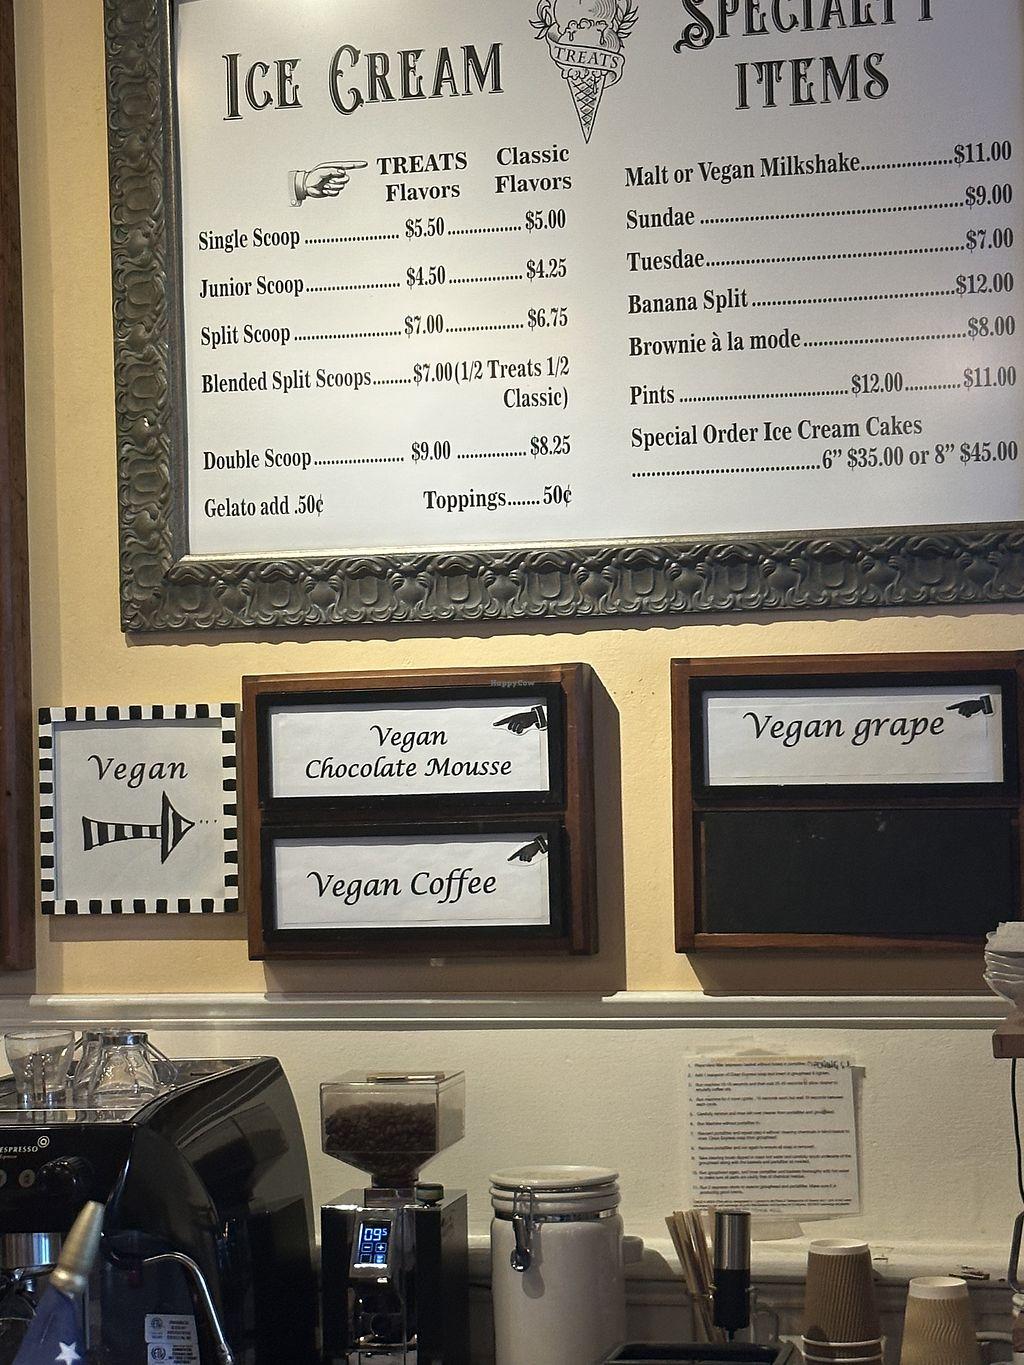 ICE CREAM
TREATS
SPECIALTY
ITEMS
TREATS Classic
Flavors Flavors
Single Scoop ...................... $5.50 ................. $5.00
Junior Scoop...................... $4.50 ................. $4.25
Split Scoop ......................... $7.00 ................. $6.75
Blended Split Scoops.........$7.00(1/2 Treats 1/2
Classic)
Double Scoop..................... $9.00 ................ $8.25
Gelato add .50¢ Toppings.......50¢
Malt or Vegan Milkshake..................$11.00
Sundae .....................................................$9.00
Tuesdae....................................................$7.00
Banana Split .........................................$12.00
Brownie à la mode.................................$8.00
Pints ..................................$12.00...........$11.00
Special Order Ice Cream Cakes
.....................................6” $35.00 or 8” $45.00
HappyCow
Vegan
Vegan
Chocolate Mousse
Vegan Coffee
Vegan grape
09⁵